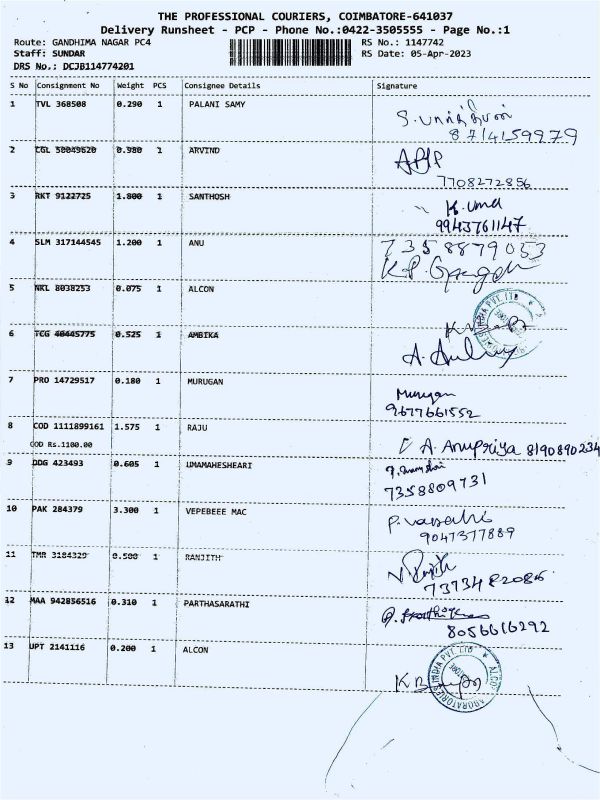 THE PROFESSIONAL COURIERS, COIMBATORE-641037
Delivery Runsheet - PCP - Phone No.:0422-3505555 - Page No.:1
Route: GANDHIMA NAGAR PC4 RS No.: 1147742
Staff: SUNDAR RS Date: 05-Apr-2023
DRS No.: DCJB114774201
S No Consignment No Weight PCS Consignee Details Signature
1 TVL 368508 0.290 1 PALANI SAMY
8714159979
2 CGL 50049620 0.980 1 ARVIND
7708272856
3 RKT 9122725 1.800 1 SANTHOSH K.Uma
9943761147
4 SLM 317144545 1.200 1 ANU 7358879053
5 NKL 8038253 0.075 1 ALCON
6 TCG 40445775 0.525 1 AMBIKA
7 PRO 14729517 0.180 1 MURUGAN Murugan
9677661552
8 COD 1111899161 1.575 1 RAJU
COD Rs.1100.00 A. Anupriya 8190890234
9 DDG 423493 0.605 1 UMAMAHESHEARI
7358809731
10 PAK 284379 3.300 1 VEPEBEEE MAC
9047377889
11 TMR 3184329 0.500 1 RANJITH
7373482086
12 MAA 942856516 0.310 1 PARTHASARATHI
8056616292
13 UPT 2141116 0.200 1 ALCON